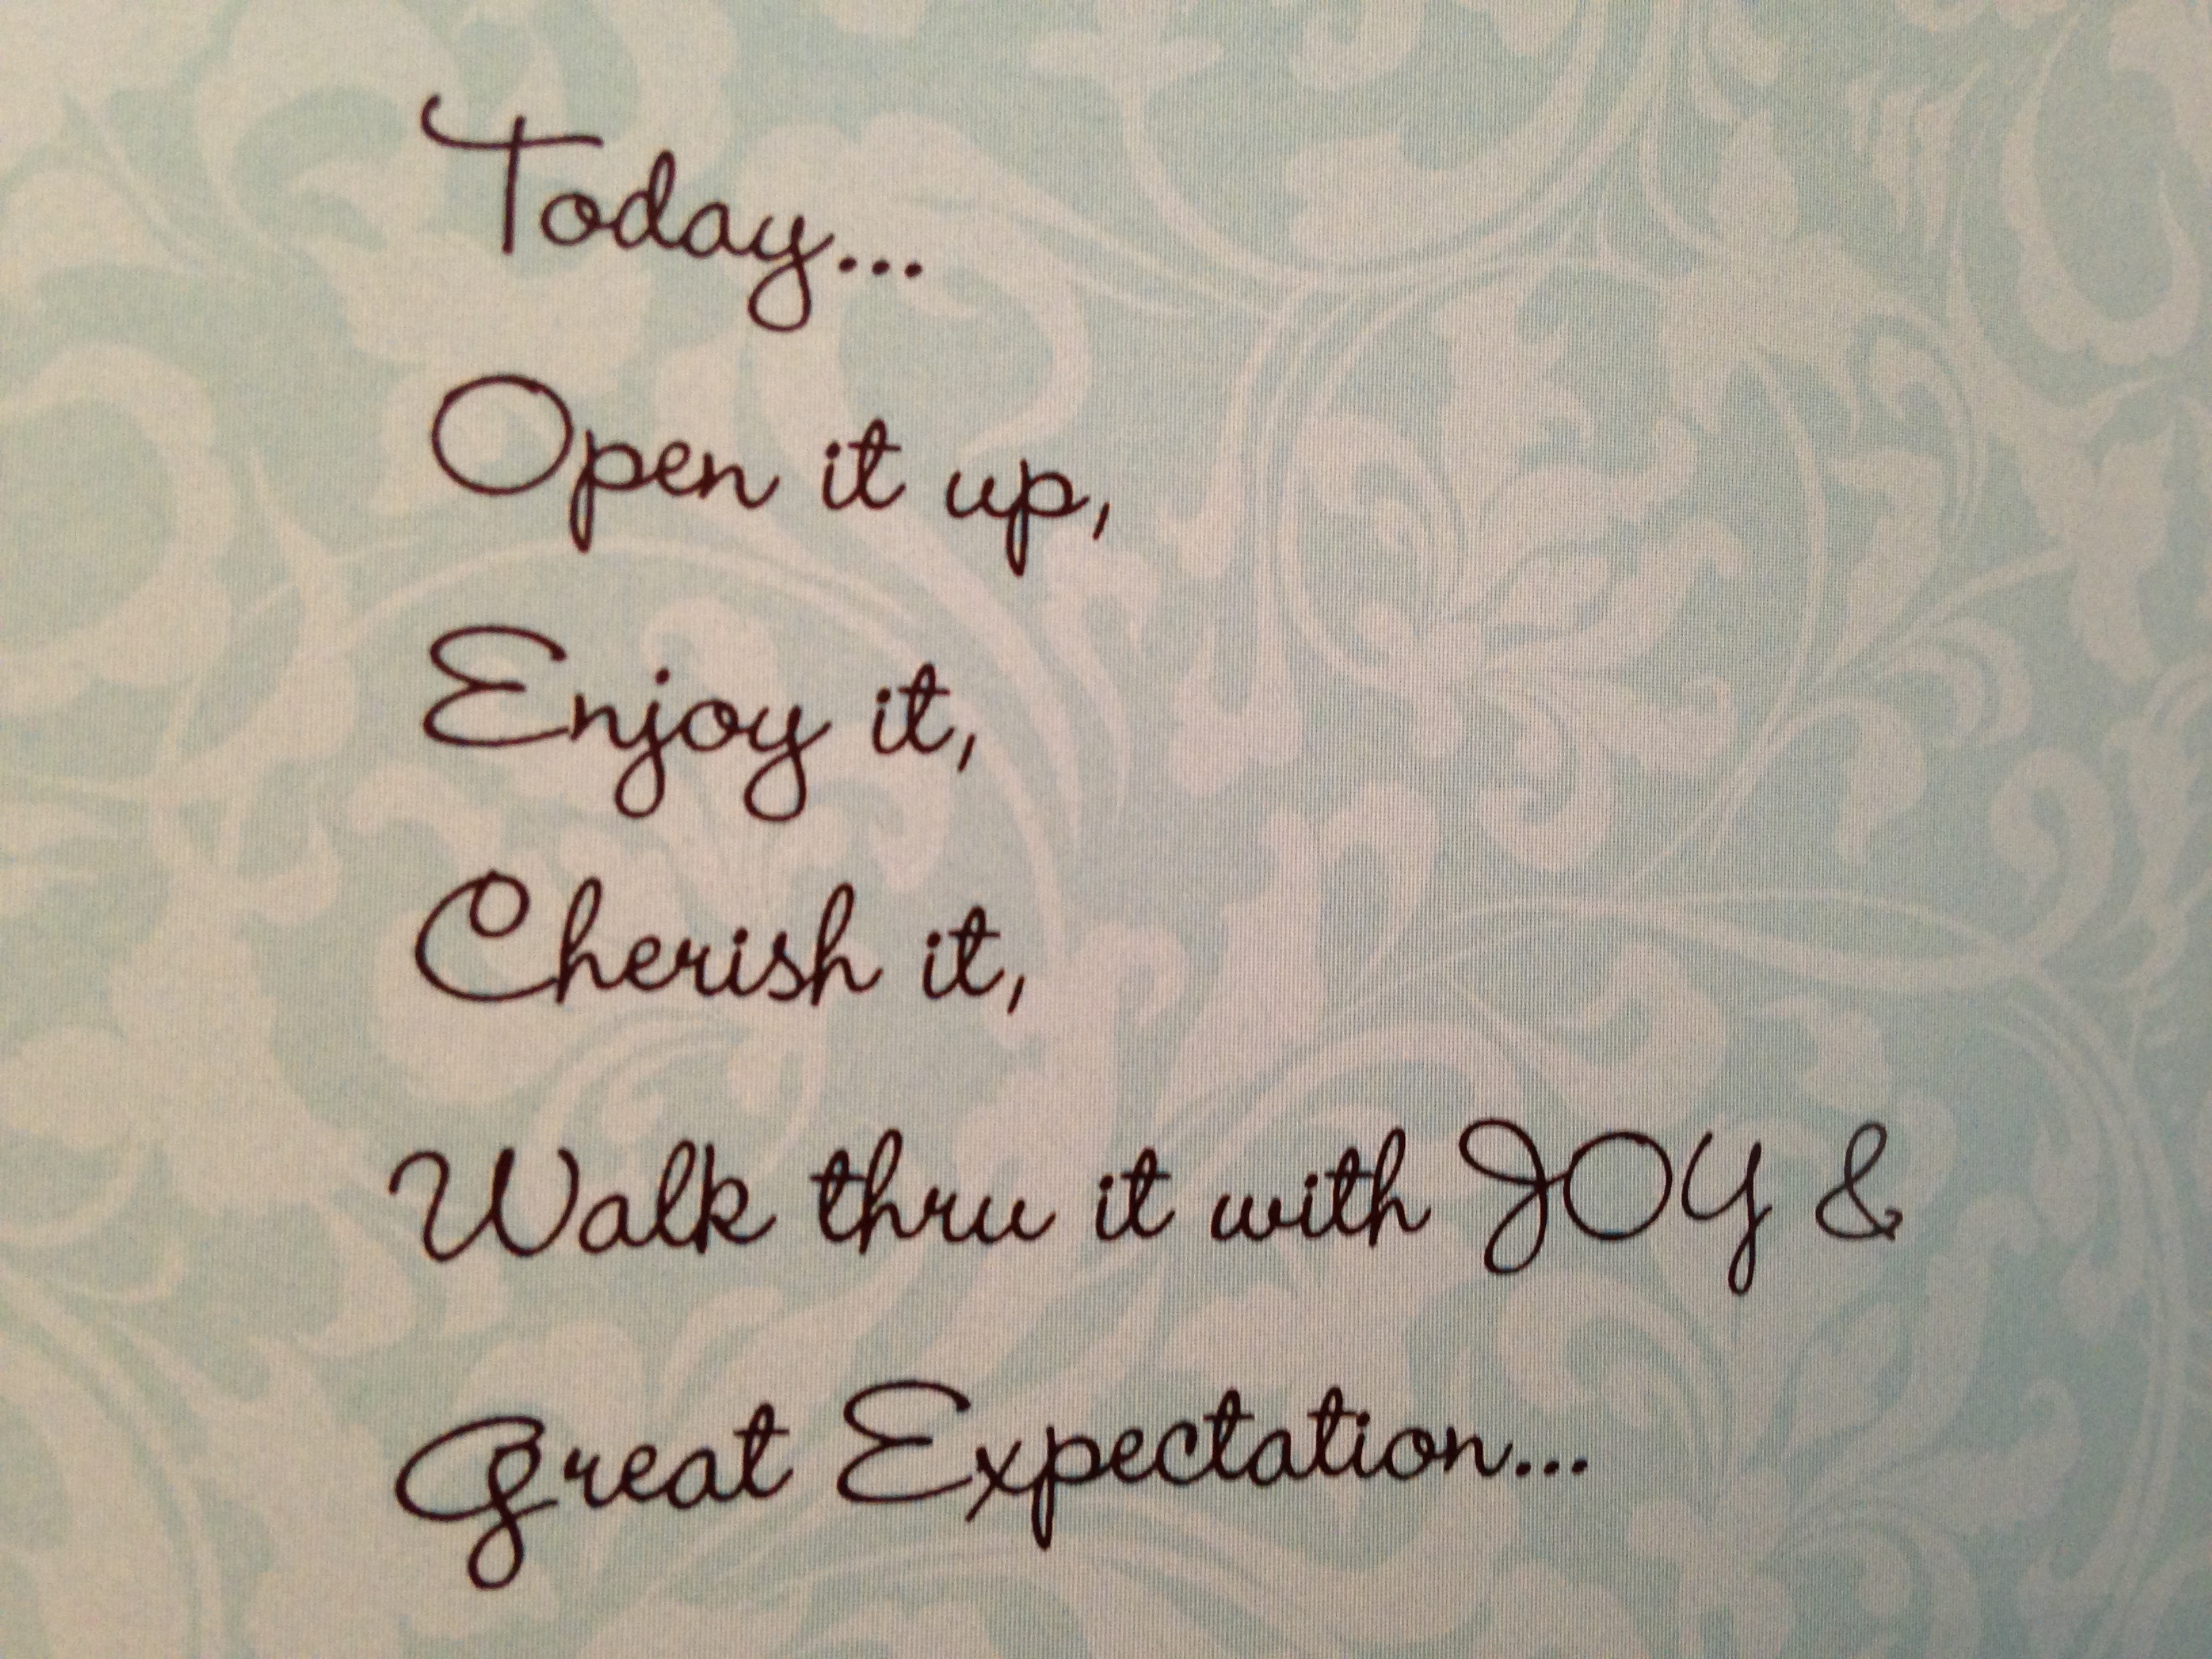 Today...
Open it up,
Enjoy it,
Cherish it,
Walk thru it with JOY &
Great Expectation...